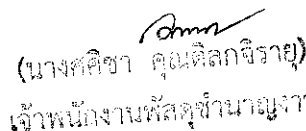 (นางศศิชา คุณดิลกจิรายุ)
เจ้าพนักงานพัสดุชำนาญงาน